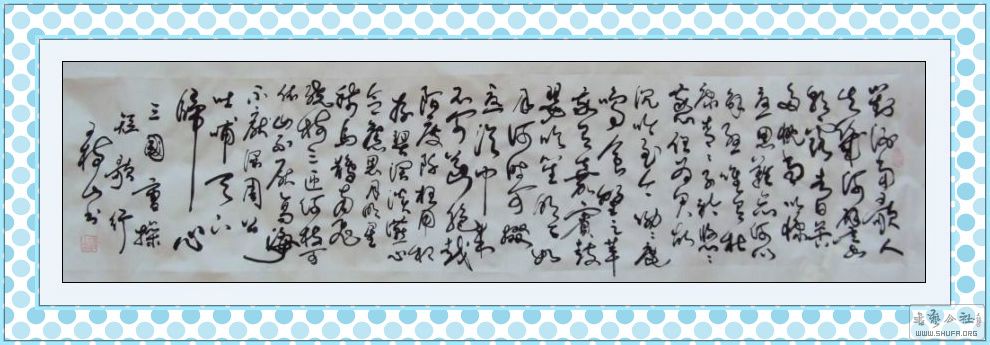 對酒當歌人
生幾何譬如
朝露去日苦
多慨當以慷
憂思難忘何以
解憂唯有杜
康青青子衿悠悠
我心但為君故
沉吟至今呦呦鹿
鳴食野之苹
我有嘉賓鼓
瑟吹笙明明如
月何時可掇
憂從中來
不可斷絕越
陌度阡枉用相
存契闊談讌心
念舊恩月明星
稀烏鵲南飛
繞樹三匝何枝可
依山不厭高海
不厭深周公
吐哺天下
歸心
三國曹操
短歌行
山書
WWW.SHUFA.ORG